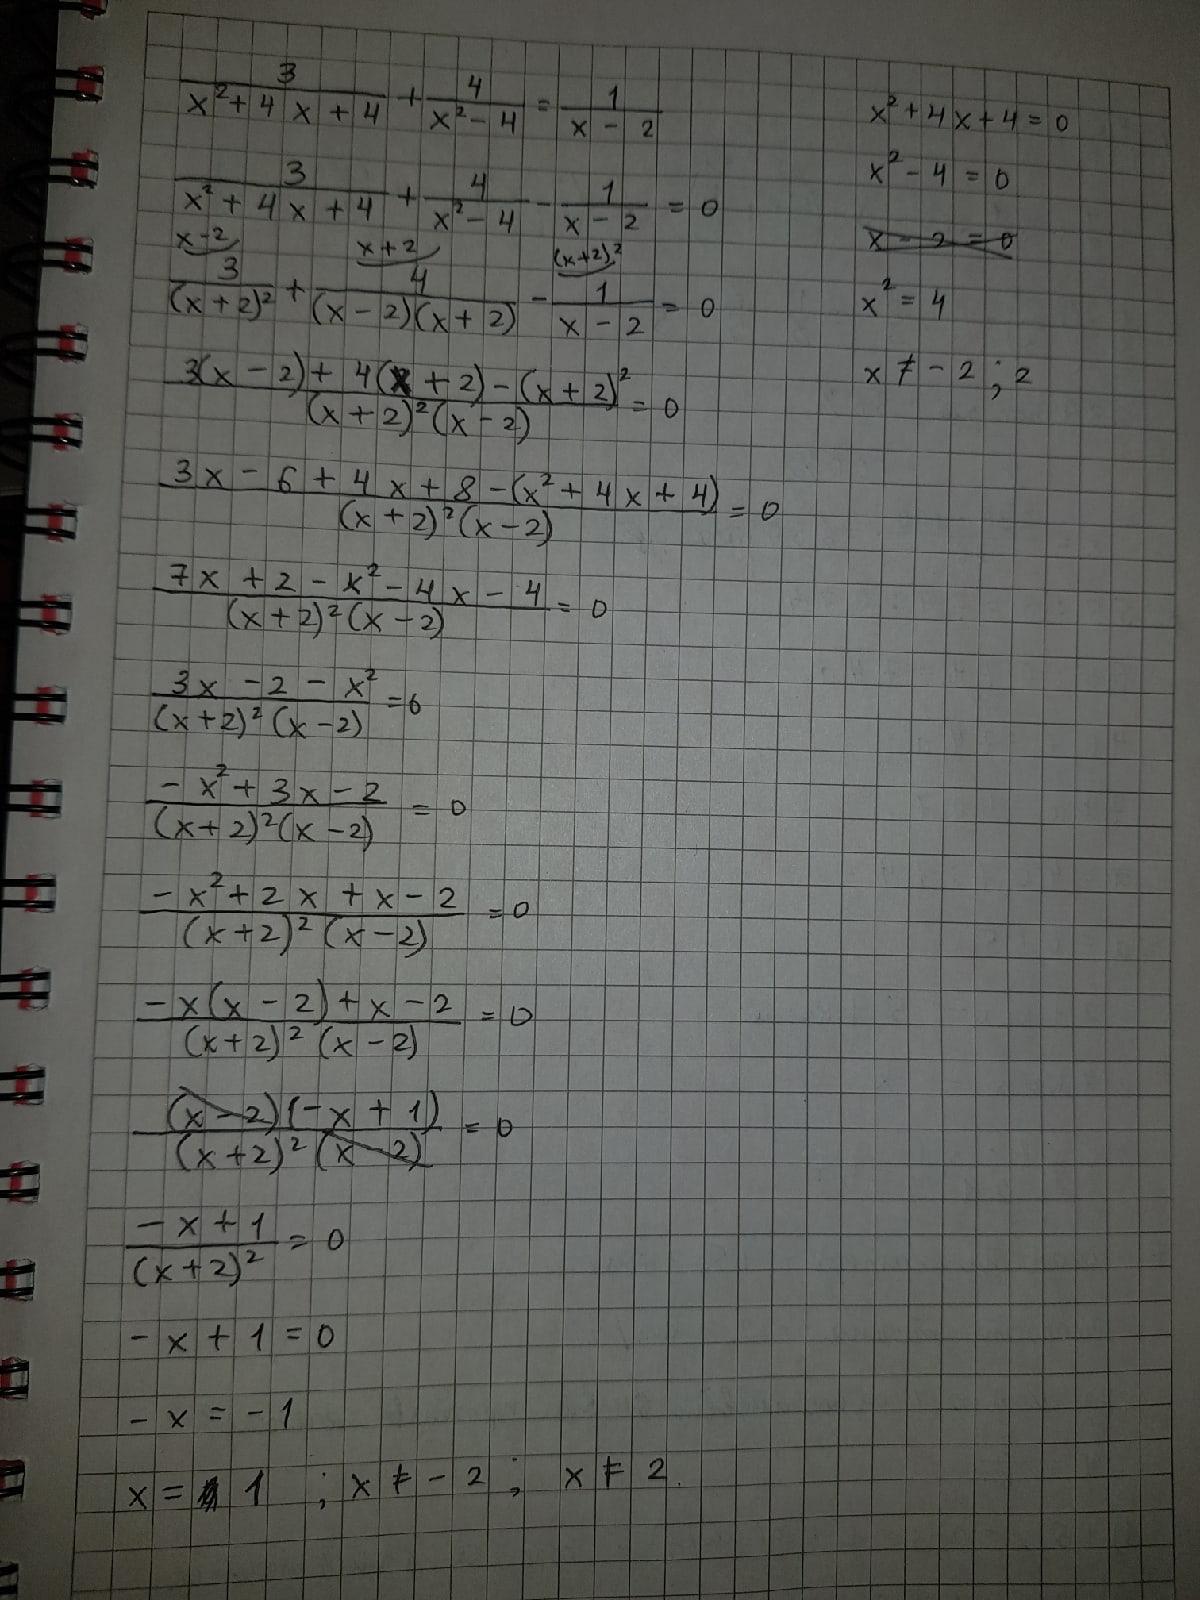 3/(x²+4x+4) + 4/(x²-4) = 1/(x-2)
3/(x²+4x+4) + 4/(x²-4) - 1/(x-2) = 0
x-2 x+2 (x+2)²
3/(x+2)² + 4/((x-2)(x+2)) - 1/(x-2) = 0
(3(x-2)+4(x+2)-(x+2)²)/((x+2)²(x-2)) = 0
(3x-6+4x+8-(x²+4x+4))/((x+2)²(x-2)) = 0
(7x+2-x²-4x-4)/((x+2)²(x-2)) = 0
(3x-2-x²)/((x+2)²(x-2)) = 6
(-x²+3x-2)/((x+2)²(x-2)) = 0
(-x²+2x+x-2)/((x+2)²(x-2)) = 0
(-x(x-2)+x-2)/((x+2)²(x-2)) = 0
((x-2)(-x+1))/((x+2)²(x-2)) = 0
(-x+1)/(x+2)² = 0
-x+1=0
-x=-1
x=1 ; x≠-2 ; x≠2.
x²+4x+4=0
x²-4=0
x-2=0
x²=4
x≠-2;2